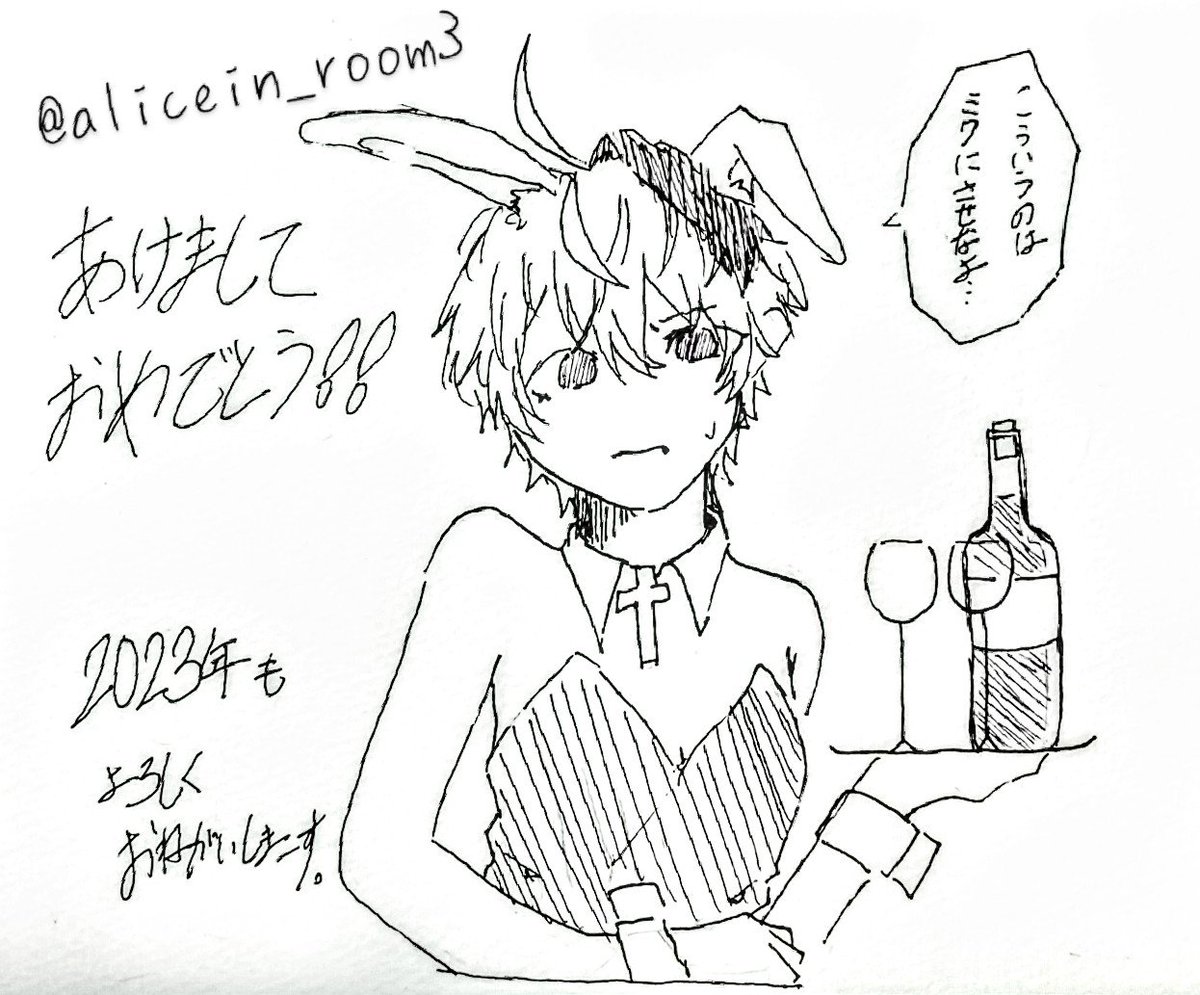 @alicein_room3
あけまして
おめでとう!!
2023年も
よろしく
おねがいしまーす。
こういうのは
ミクにさせなよ…